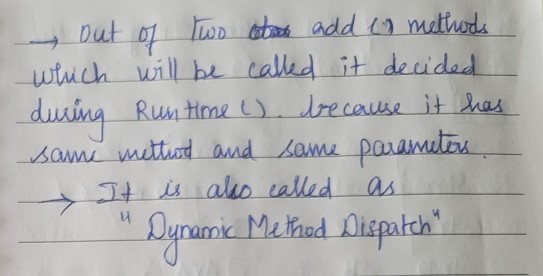 → Out of Two add () methods
which will be called it decided
during Runtime(). because it has
same method and same parameters.
→ It is also called as
"Dynamic Method Dispatch"